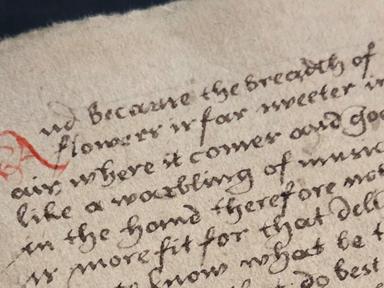 And because the breadth of
flowers is far sweeter in
air where it comes and goe
like a warbling of music
in the hand therefore not
is more fit for that deli
to know what be t
that do best